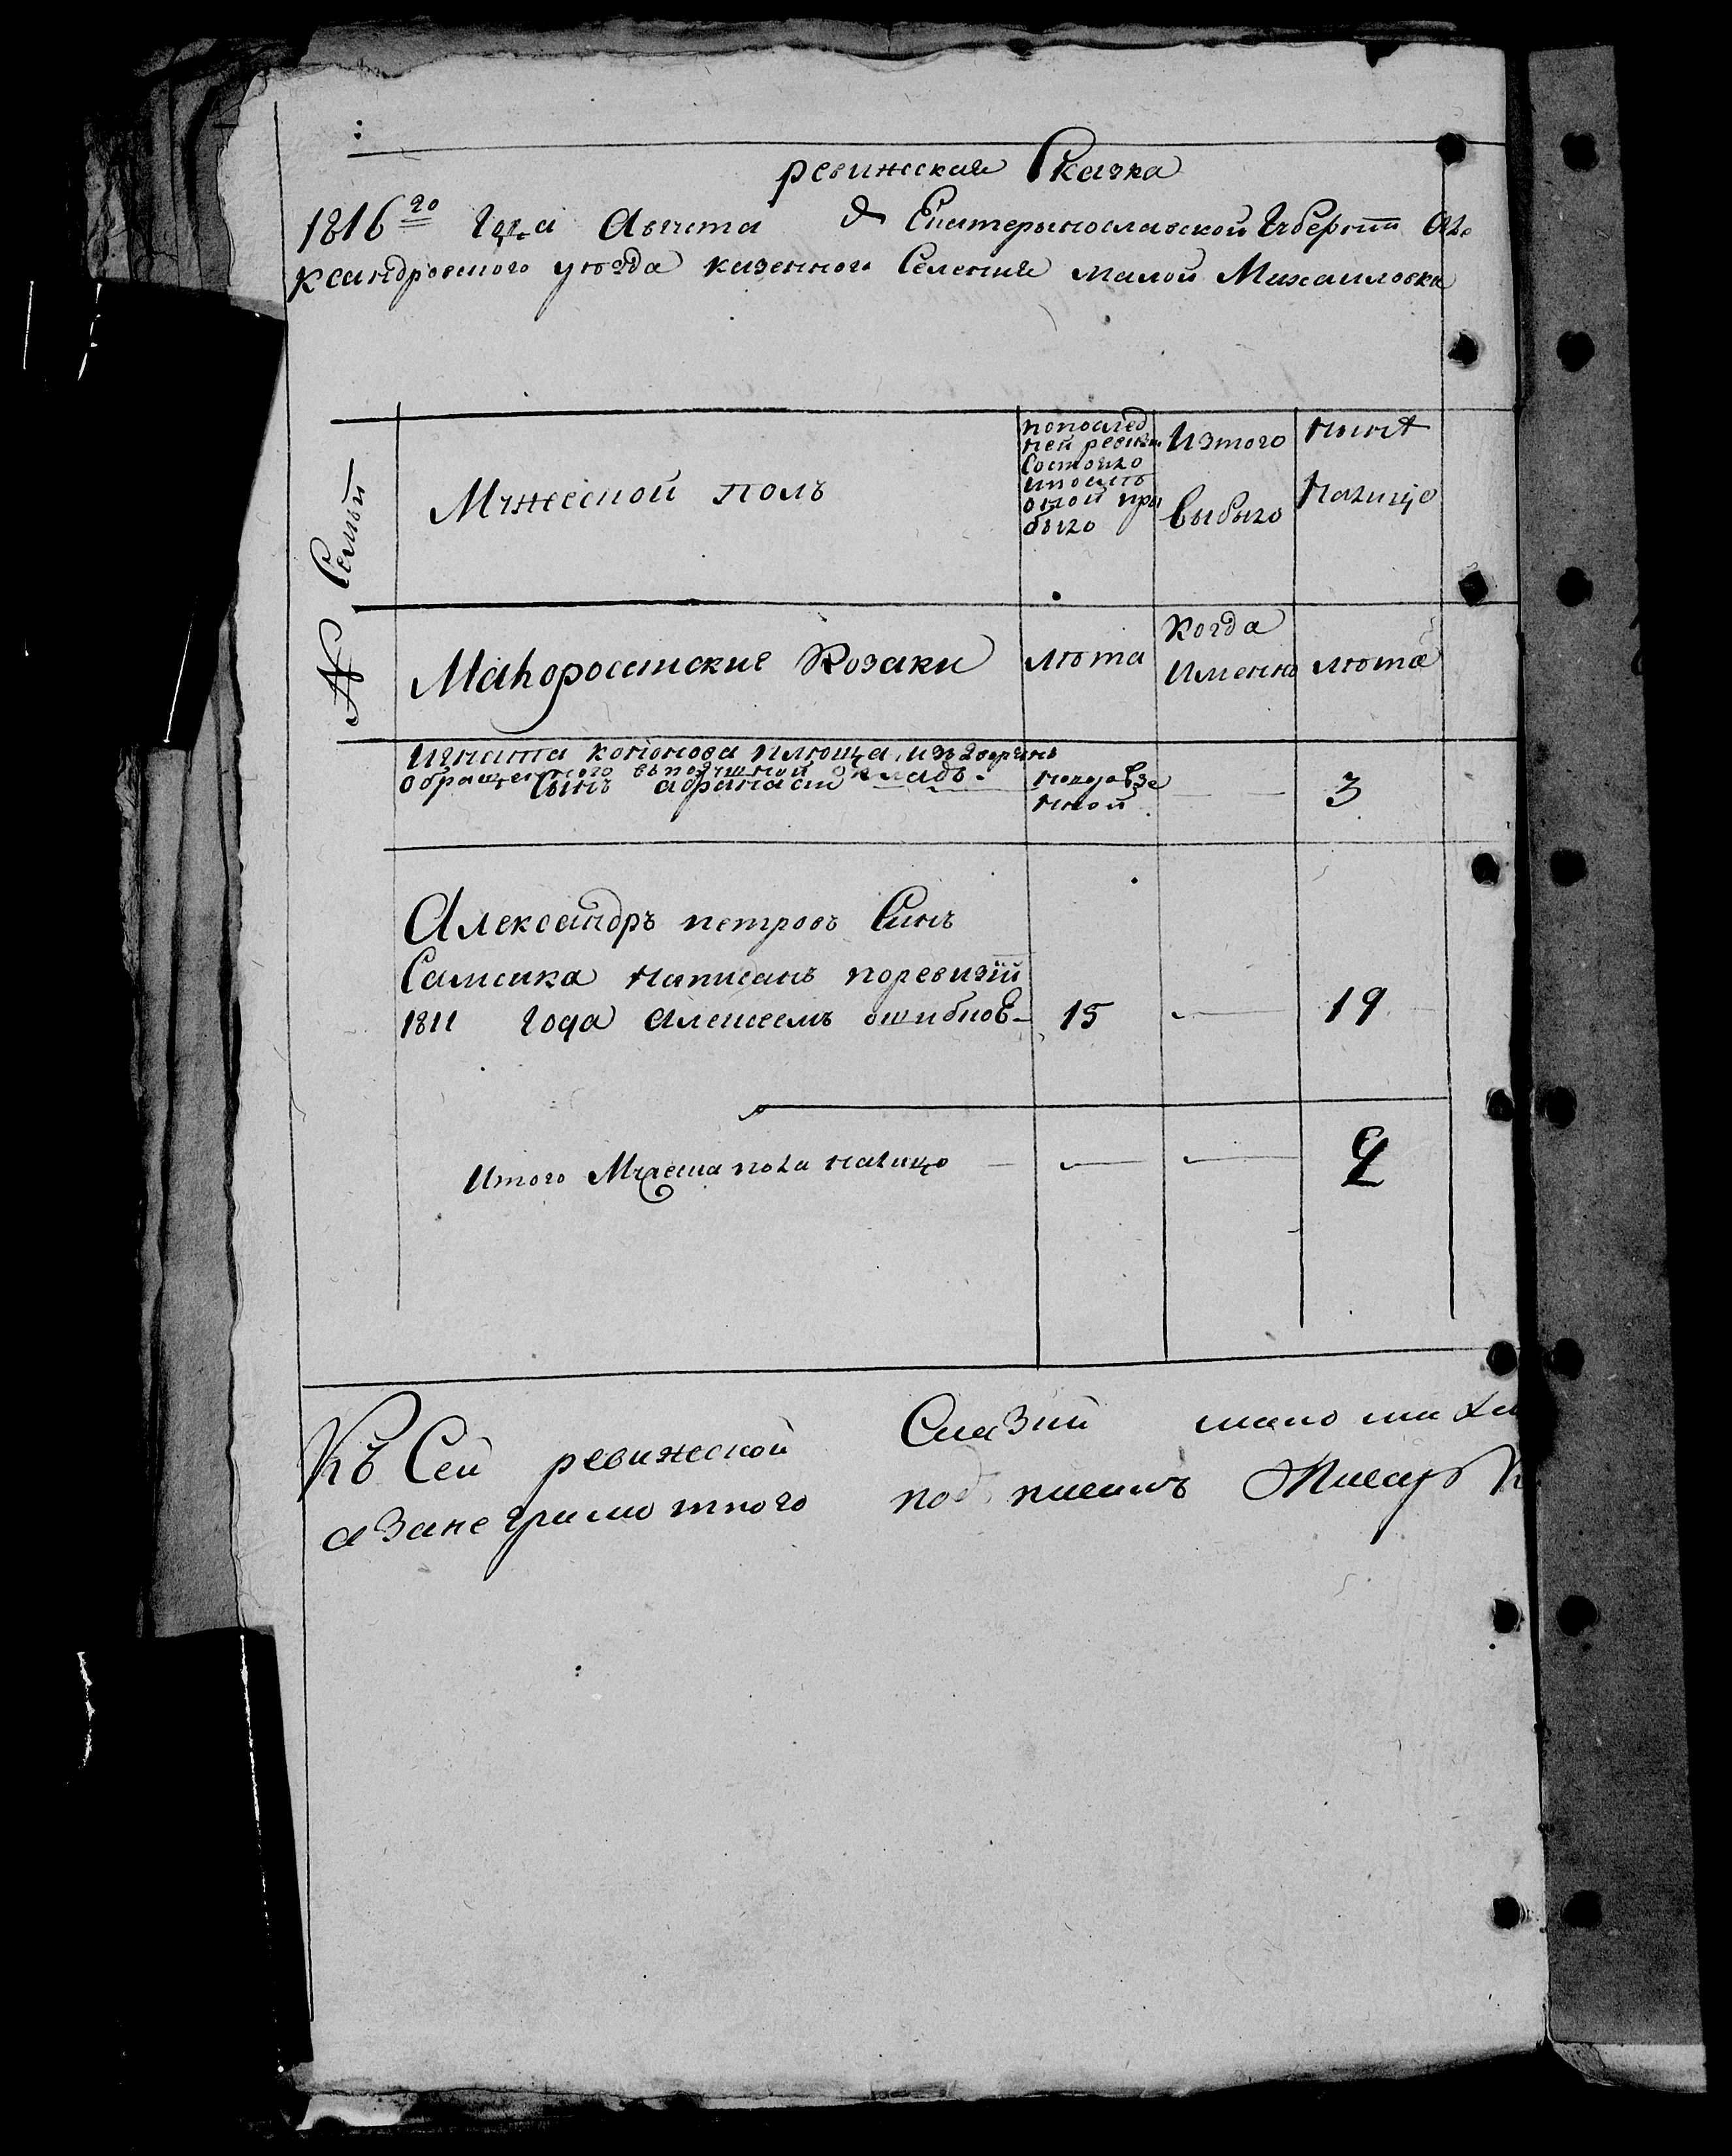 ревижская Сказка
1816го Года Августа д Екатеринославской Губернии Але
ксандровского уѣзда казенного Селения малой Михаиловки
№ Семьи
Мужеской полъ
попослед
ней ревизи
Состояло
ипослѣ
оной при
было
Изтого
выбыло
Нынѣ
налицо
Малоросийские Козаки
лѣта
Когда
Именно
лѣта
Игната Кононова плюща, изъ дворянъ
обращенного въ подушной окладъ
Сынъ афанасий
3
Александръ петровъ Синъ
Самсика написанъ поревизій
1811 Года Алексеемъ ошибков-
15
19
Итого Мужеска пола налицо
2
Къ Сей ревижеской Сказки мало миха
азане грамотного подписалъ Писарь